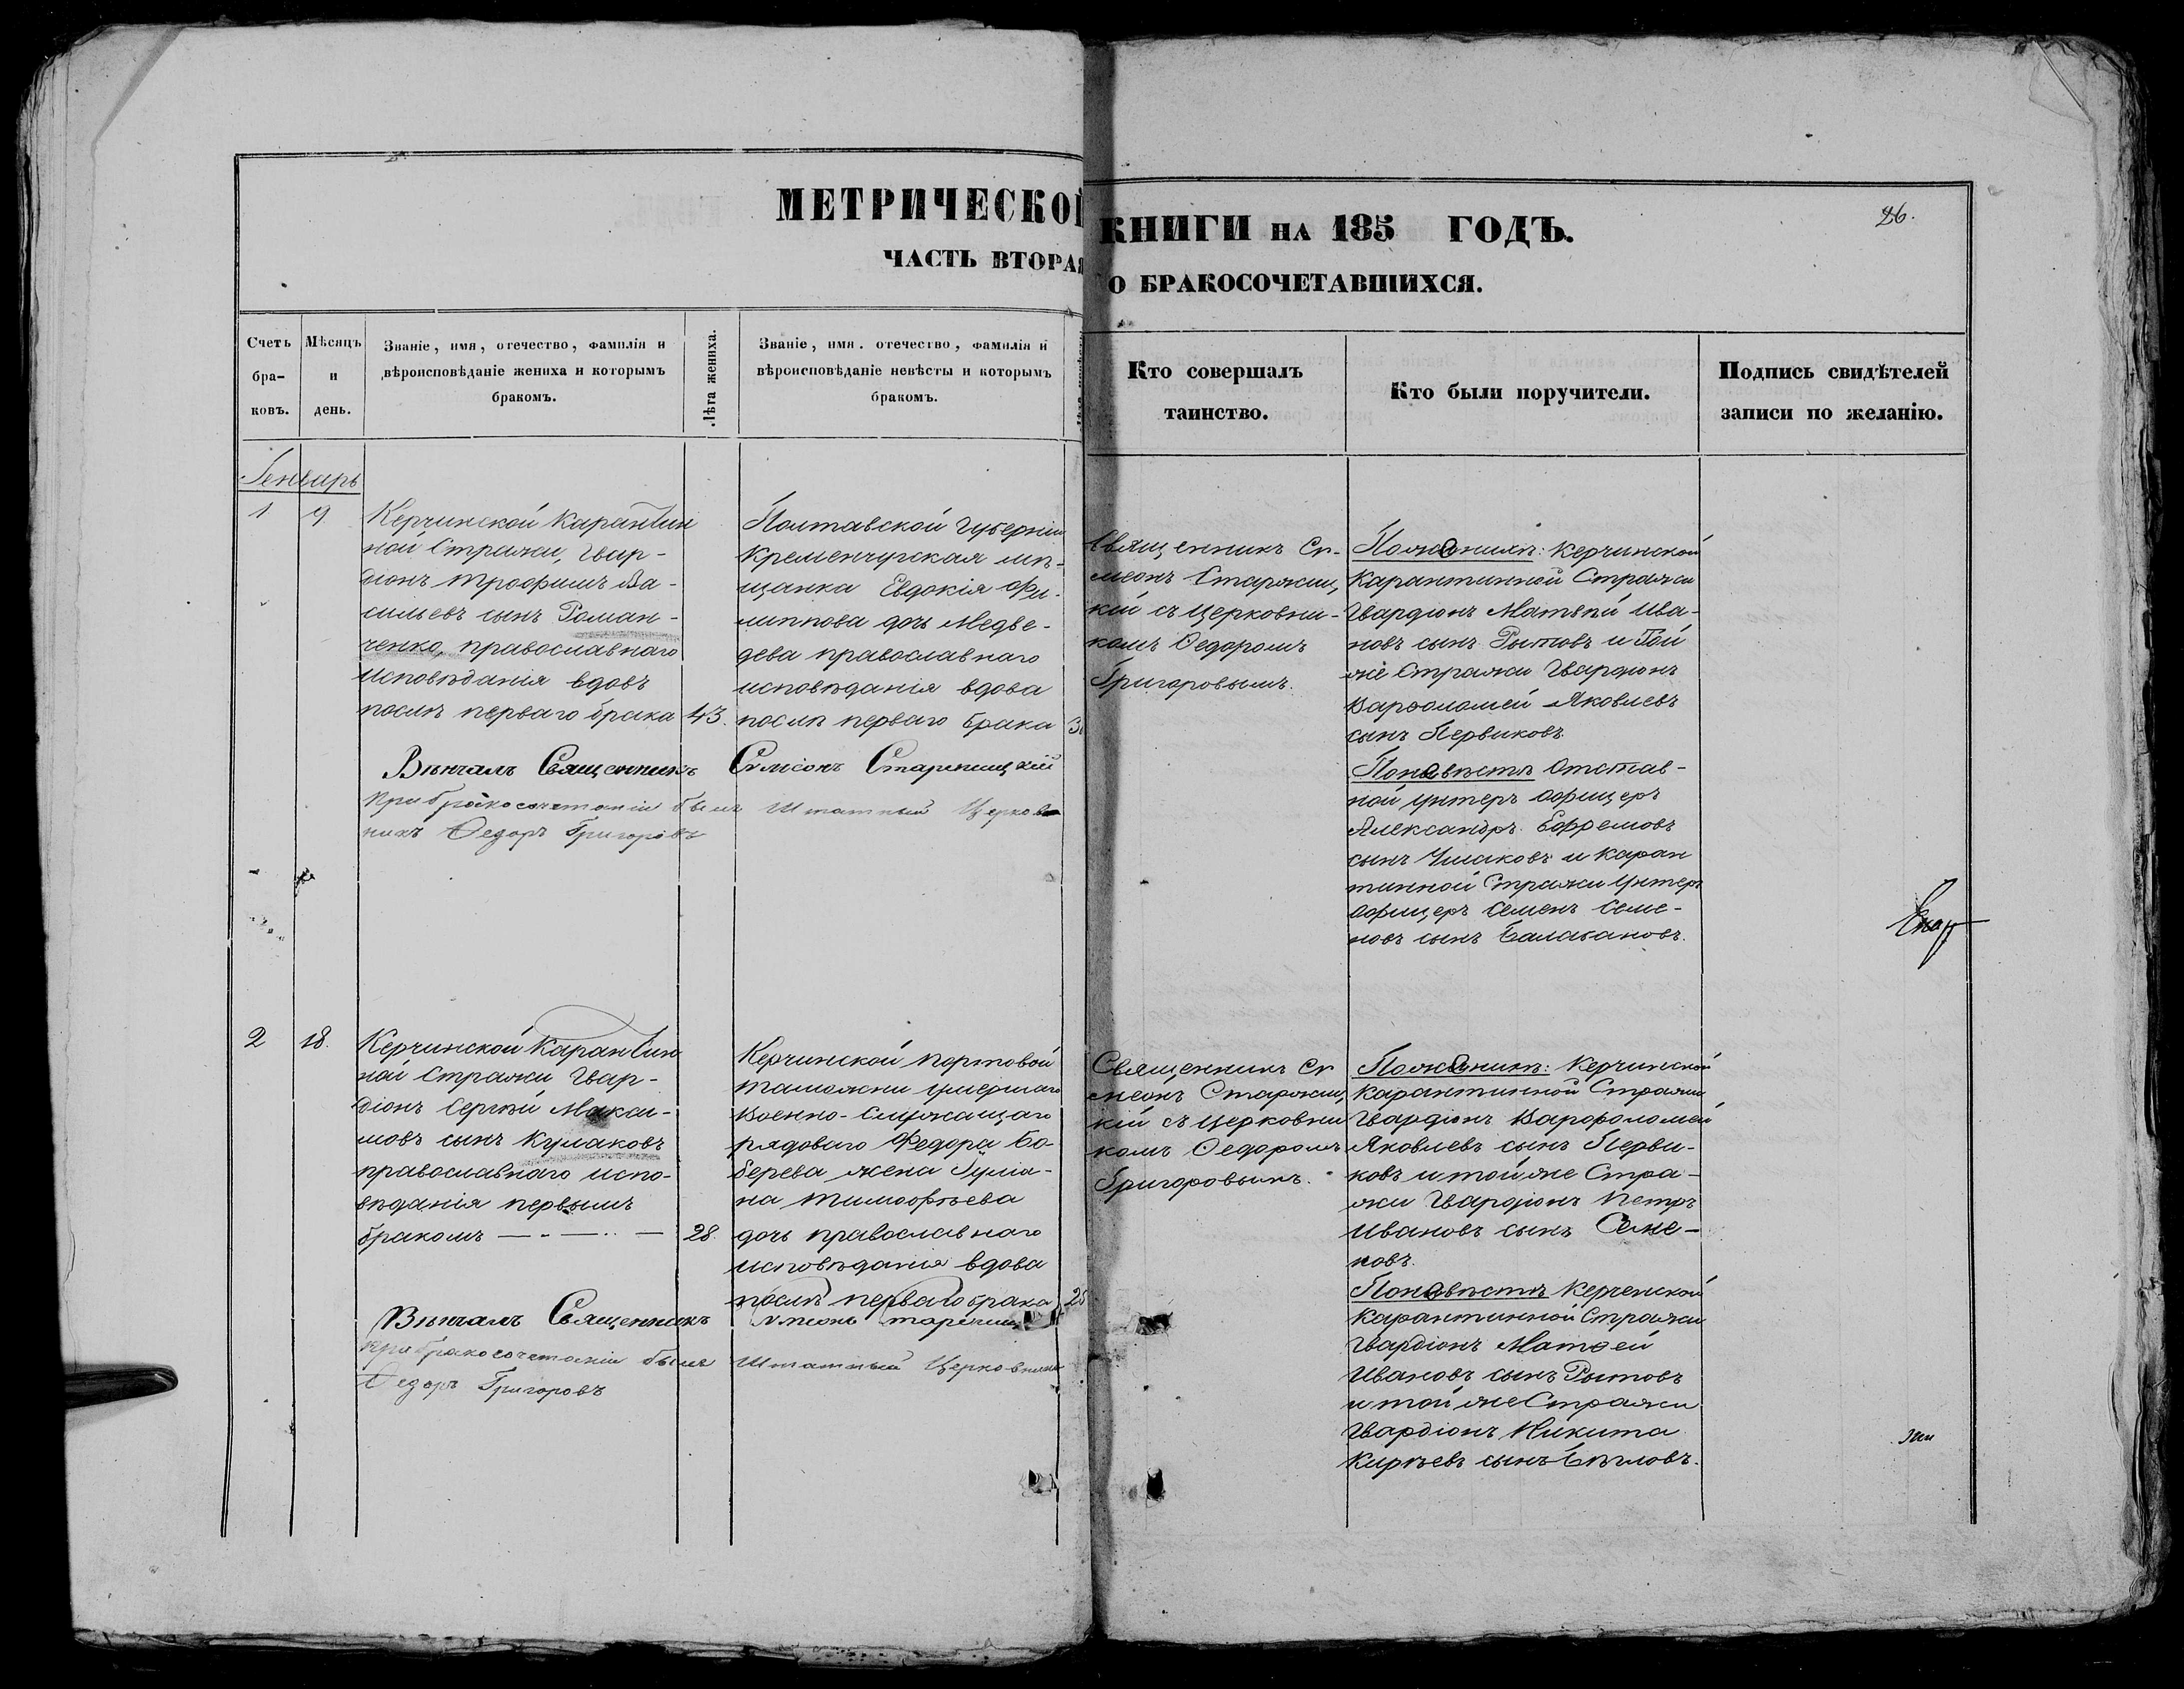 МЕТРИЧЕСКОЙ КНИГИ НА 185 ГОДЪ.
26.
ЧАСТЬ ВТОРАЯ О БРАКОСОЧЕТАВШИХСЯ.
Счетъ
бра-
ковъ.
Мѣсяцъ
и
день.
Званіе, имя, отечество, фамилія и
вѣроисповѣданіе жениха и которымъ
бракомъ.
Лѣта жениха.
Званіе, имя, отечество, фамилія и
вѣроисповѣданіе невѣсты и которымъ
бракомъ.
Кто совершалъ
таинство.
Кто были поручители.
Подпись свидѣтелей
записи по желанію.
Генварь
1
9
Керчинской Карантин
ной Стражи, Гвар-
діонъ Трофимъ Ва-
сильевъ сынъ Роман-
ченко, православнаго
исповѣданія вдовъ
послѣ перваго брака
43.
Полтавской Губерніи
Кременчугская мѣ-
щанка Евдокія Фи-
липпова дочь Медве-
дева православнаго
исповѣданія вдова
послѣ перваго брака
Священникъ Сѵ-
меонъ Старжиц
кій съ Церковни-
комъ Ѳедоромъ
Григоровымъ.
По женихѣ: Керчинской
Карантинной Стражи
Гвардіонъ Матвѣй Ива-
новъ сынъ Рытовъ и Той
же Стражи Гвардіонъ
Варѳоломей Яковлевъ
сынъ Первиковъ.
По невѣстѣ Отстав-
ной унтеръ Офицеръ
Александръ Ефремовъ
сынъ и Каран
тинной Стражи Унтеръ
Офицеръ Семенъ Семе-
новъ сынъ Балакановъ.
Вѣнчалъ Священникъ Сѵмеонъ
При бракосочетаніи былъ Штатный Церков
никъ Ѳедоръ Григоровъ
2
18.
Керчинской Карантин
ной Стражи Гвар-
діонъ Сергѣй Макси-
мовъ сынъ Кулаковъ
православнаго испо-
вѣданія первымъ
бракомъ — - — .. —
28.
Керчинской портовой
таможни умершаго
военно-служащаго
рядоваго Федора Бо-
берева жена Іуліа-
на Тимофѣева
дочь православнаго
исповѣданія вдова
послѣ перваго брака
Священникъ Сѵ
меонъ Старжиц
кій съ Церковни
комъ Ѳедоромъ
Григоровымъ.
По женихѣ: Керчинской
Карантинной Стражи
Гвардіонъ Варфоломей
Яковлевъ сынъ Перви-
ковъ и той же Стра-
жи Гвардіонъ Петръ
Ивановъ сынъ Семе-
новъ.
По невѣстѣ Керченской
Карантинной Стражи
Гвардіонъ Матѳей
Ивановъ сынъ Рытовъ
и той же Стражи
Гвардіонъ Никита
Кирѣевъ сынъ Бѣловъ.
Вѣнчалъ Священникъ Сѵмеонъ
При бракосочетаніи былъ Штатный Церковникъ
Ѳедоръ Григоровъ